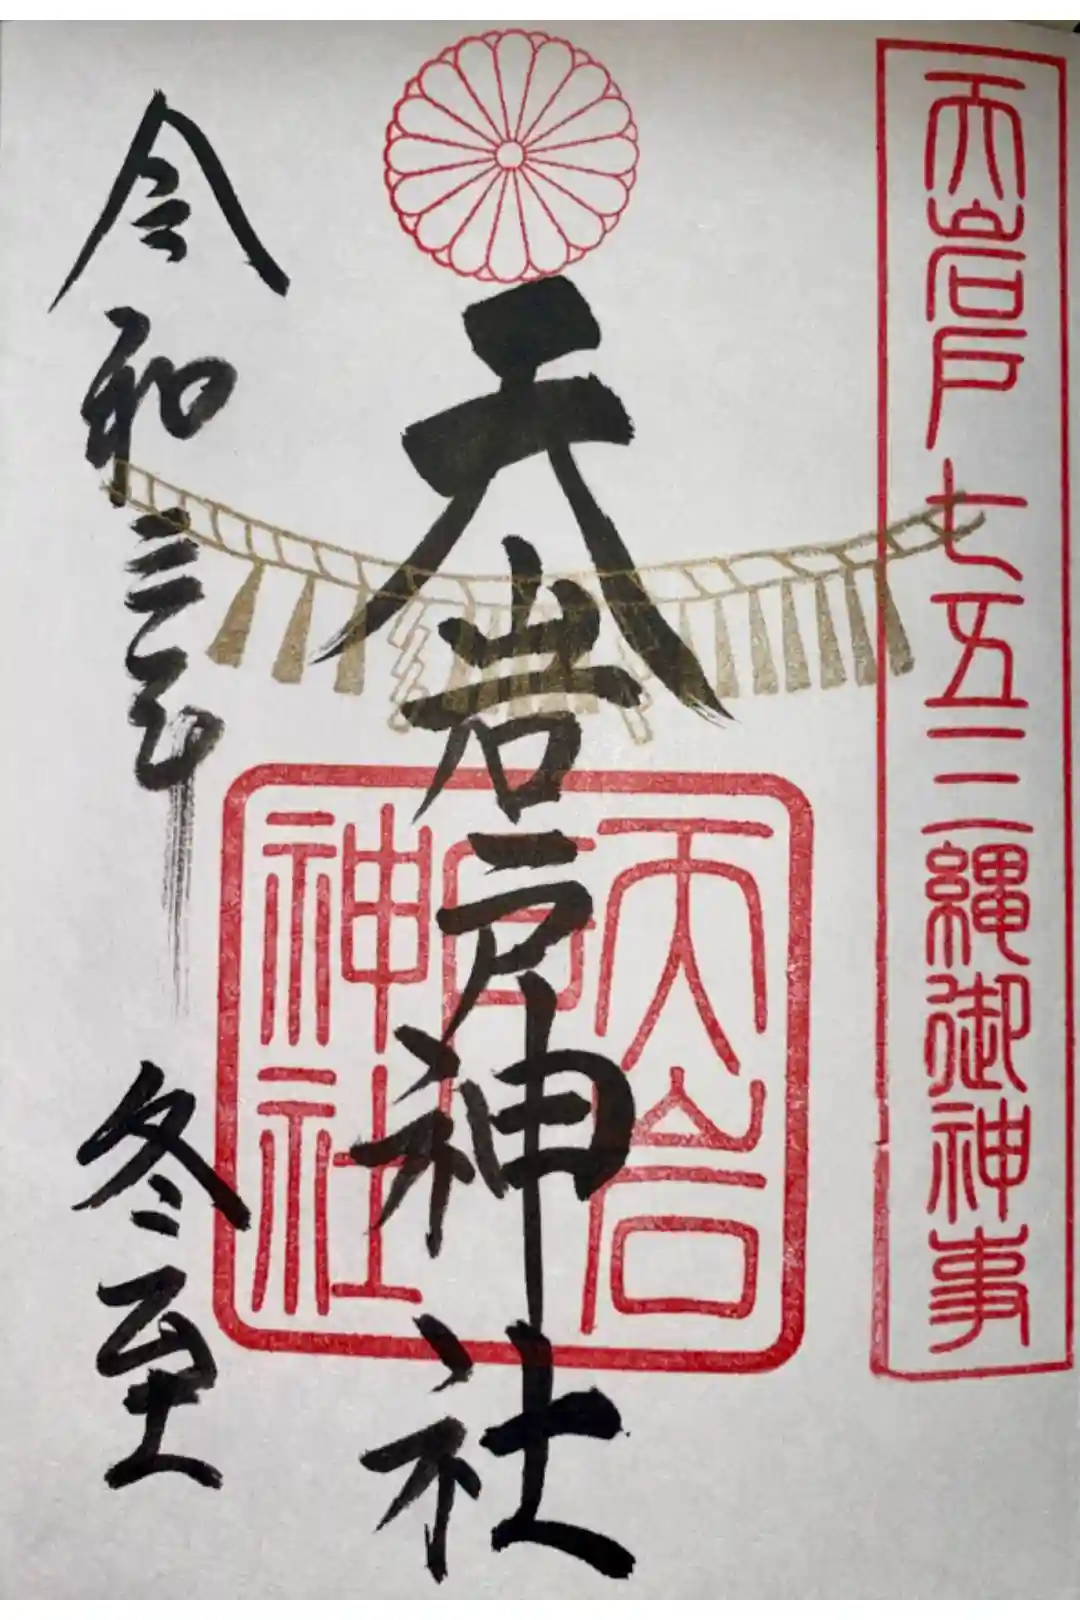 天岩戸七五三縄御神事
天岩戸神社
天岩戸神社
令和三年 冬至